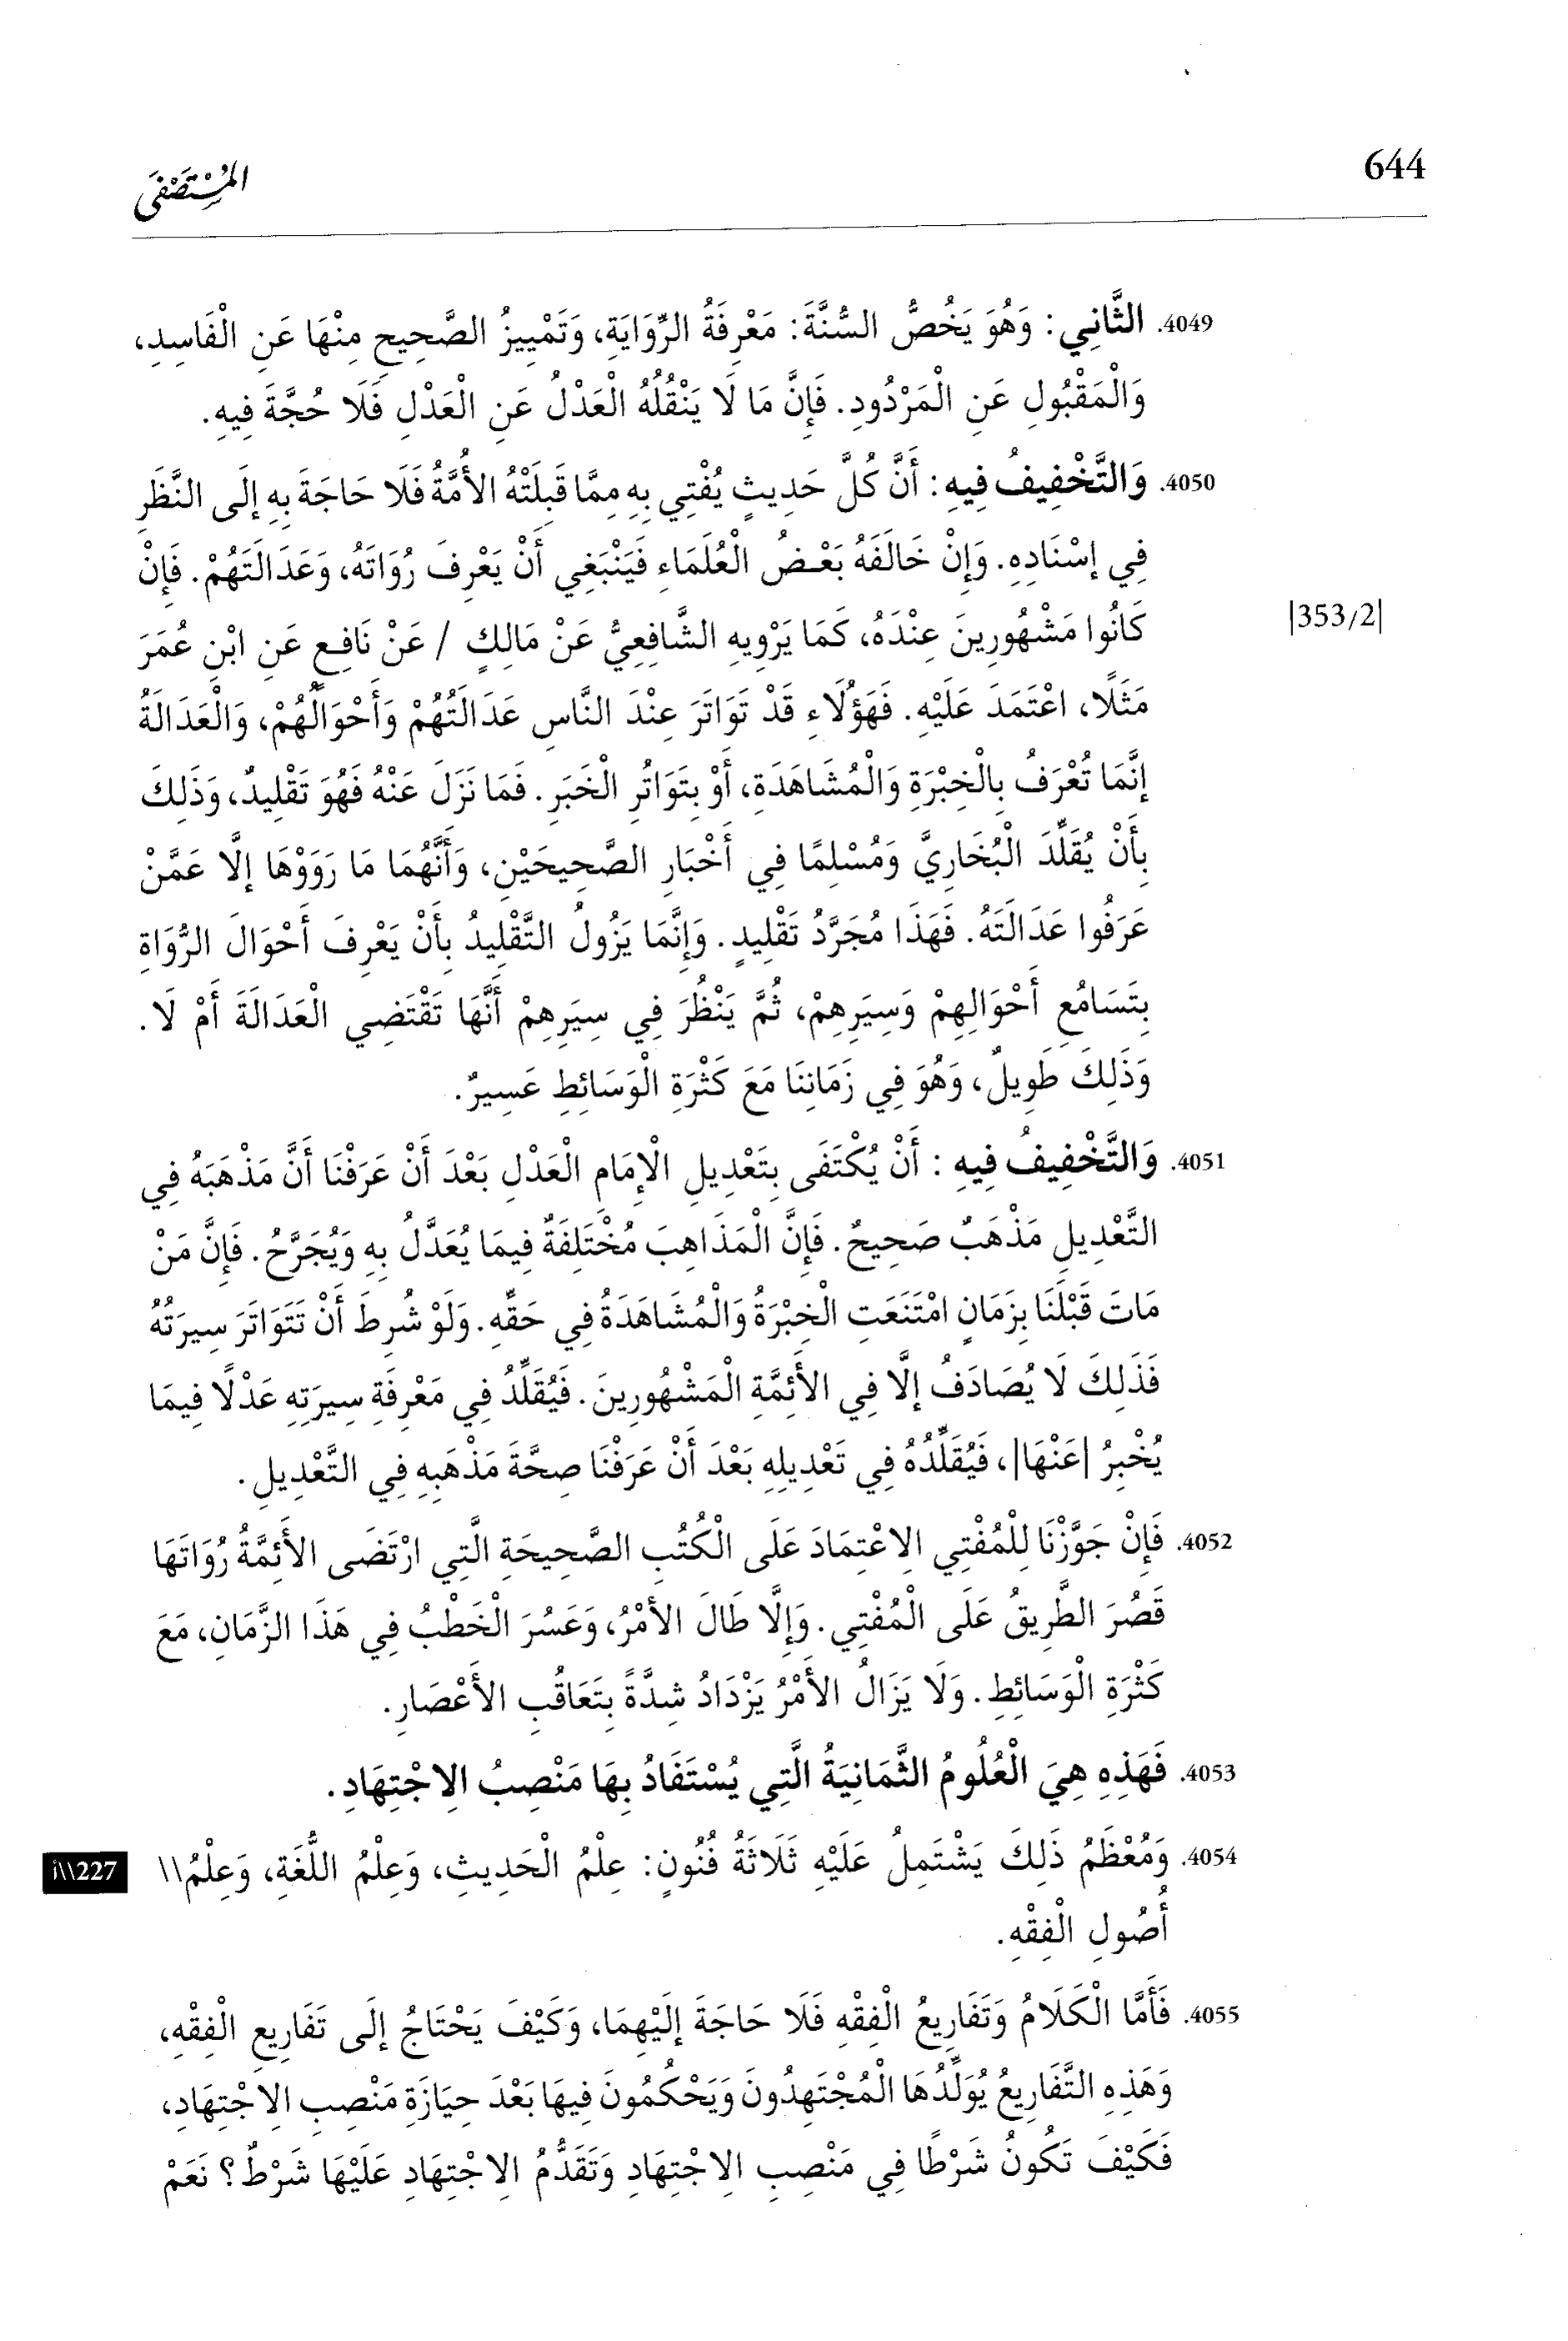 644
المُسْتَصْفَى
4049. الثَّانِي: وَهُوَ يَخُصُّ السُّنَّةَ: مَعْرِفَةُ الرِّوَايَةِ، وَتَمْيِيزُ الصَّحِيحِ مِنْهَا عَنِ الْفَاسِدِ،
وَالْمَقْبُولِ عَنِ الْمَرْدُودِ. فَإِنَّ مَا لَا يَنْقُلُهُ الْعَدْلُ عَنِ الْعَدْلِ فَلَا حُجَّةَ فِيهِ.
4050. وَالتَّخْفِيفُ فِيهِ: أَنَّ كُلَّ حَدِيثٍ يُفْتِي بِهِ مِمَّا قَبِلَتْهُ الأُمَّةُ فَلَا حَاجَةَ بِهِ إِلَى النَّظَرِ
فِي إِسْنَادِهِ. وَإِنْ خَالَفَهُ بَعْضُ الْعُلَمَاءِ فَيَنْبَغِي أَنْ يَعْرِفَ رُوَاتَهُ، وَعَدَالَتَهُمْ. فَإِنْ
كَانُوا مَشْهُورِينَ عِنْدَهُ، كَمَا يَرْوِيهِ الشَّافِعِيُّ عَنْ مَالِكٍ / عَنْ نَافِعٍ عَنِ ابْنِ عُمَرَ
|353/2|
مَثَلًا، اعْتَمَدَ عَلَيْهِ. فَهَؤُلَاءِ قَدْ تَوَاتَرَ عِنْدَ النَّاسِ عَدَالَتُهُمْ وَأَحْوَالُهُمْ، وَالْعَدَالَةُ
إِنَّمَا تُعْرَفُ بِالْخِبْرَةِ وَالْمُشَاهَدَةِ، أَوْ بِتَوَاتُرِ الْخَبَرِ. فَمَا نَزَلَ عَنْهُ فَهُوَ تَقْلِيدٌ، وَذَلِكَ
بِأَنْ يُقَلِّدَ الْبُخَارِيَّ وَمُسْلِمًا فِي أَخْبَارِ الصَّحِيحَيْنِ، وَأَنَّهُمَا مَا رَوَوْهَا إِلَّا عَمَّنْ
عَرَفُوا عَدَالَتَهُ. فَهَذَا مُجَرَّدُ تَقْلِيدٍ. وَإِنَّمَا يَزُولُ التَّقْلِيدُ بِأَنْ يَعْرِفَ أَحْوَالَ الرُّوَاةِ
بِتَسَامُعِ أَحْوَالِهِمْ وَسِيَرِهِمْ، ثُمَّ يَنْظُرَ فِي سِيَرِهِمْ أَنَّهَا تَقْتَضِي الْعَدَالَةَ أَمْ لَا.
وَذَلِكَ طَوِيلٌ، وَهُوَ فِي زَمَانِنَا مَعَ كَثْرَةِ الْوَسَائِطِ عَسِيرٌ.
4051. وَالتَّخْفِيفُ فِيهِ: أَنْ يُكْتَفَى بِتَعْدِيلِ الْإِمَامِ الْعَدْلِ بَعْدَ أَنْ عَرَفْنَا أَنَّ مَذْهَبَهُ فِي
التَّعْدِيلِ مَذْهَبٌ صَحِيحٌ. فَإِنَّ الْمَذَاهِبَ مُخْتَلِفَةٌ فِيمَا يُعَدَّلُ بِهِ وَيُجَرَّحُ. فَإِنَّ مَنْ
مَاتَ قَبْلَنَا بِزَمَانٍ امْتَنَعَتِ الْخِبْرَةُ وَالْمُشَاهَدَةُ فِي حَقِّهِ. وَلَوْ شُرِطَ أَنْ تَتَوَاتَرَ سِيرَتُهُ
فَذَلِكَ لَا يُصَادَفُ إِلَّا فِي الأَئِمَّةِ الْمَشْهُورِينَ. فَيُقَلِّدُ فِي مَعْرِفَةِ سِيرَتِهِ عَدْلًا فِيمَا
يُخْبِرُ |عَنْهَا|، فَيُقَلِّدُهُ فِي تَعْدِيلِهِ بَعْدَ أَنْ عَرَفْنَا صِحَّةَ مَذْهَبِهِ فِي التَّعْدِيلِ.
4052. فَإِنْ جَوَّزْنَا لِلْمُفْتِي الِاعْتِمَادَ عَلَى الْكُتُبِ الصَّحِيحَةِ الَّتِي ارْتَضَى الأَئِمَّةُ رُوَاتَهَا
قَصُرَ الطَّرِيقُ عَلَى الْمُفْتِي. وَإِلَّا طَالَ الأَمْرُ، وَعَسُرَ الْخَطْبُ فِي هَذَا الزَّمَانِ، مَعَ
كَثْرَةِ الْوَسَائِطِ. وَلَا يَزَالُ الأَمْرُ يَزْدَادُ شِدَّةً بِتَعَاقُبِ الأَعْصَارِ.
4053. فَهَذِهِ هِيَ الْعُلُومُ الثَّمَانِيَةُ الَّتِي يُسْتَفَادُ بِهَا مَنْصِبُ الِاجْتِهَادِ.
4054. وَمُعْظَمُ ذَلِكَ يَشْتَمِلُ عَلَيْهِ ثَلَاثَةُ فُنُونٍ: عِلْمُ الْحَدِيثِ، وَعِلْمُ اللُّغَةِ، وَعِلْمُ \\
227\\أ
أُصُولِ الْفِقْهِ.
4055. فَأَمَّا الْكَلَامُ وَتَفَارِيعُ الْفِقْهِ فَلَا حَاجَةَ إِلَيْهِمَا، وَكَيْفَ يَحْتَاجُ إِلَى تَفَارِيعِ الْفِقْهِ،
وَهَذِهِ التَّفَارِيعُ يُوَلِّدُهَا الْمُجْتَهِدُونَ وَيَحْكُمُونَ فِيهَا بَعْدَ حِيَازَةِ مَنْصِبِ الِاجْتِهَادِ،
فَكَيْفَ تَكُونُ شَرْطًا فِي مَنْصِبِ الِاجْتِهَادِ وَتَقَدُّمُ الِاجْتِهَادِ عَلَيْهَا شَرْطٌ؟ نَعَمْ